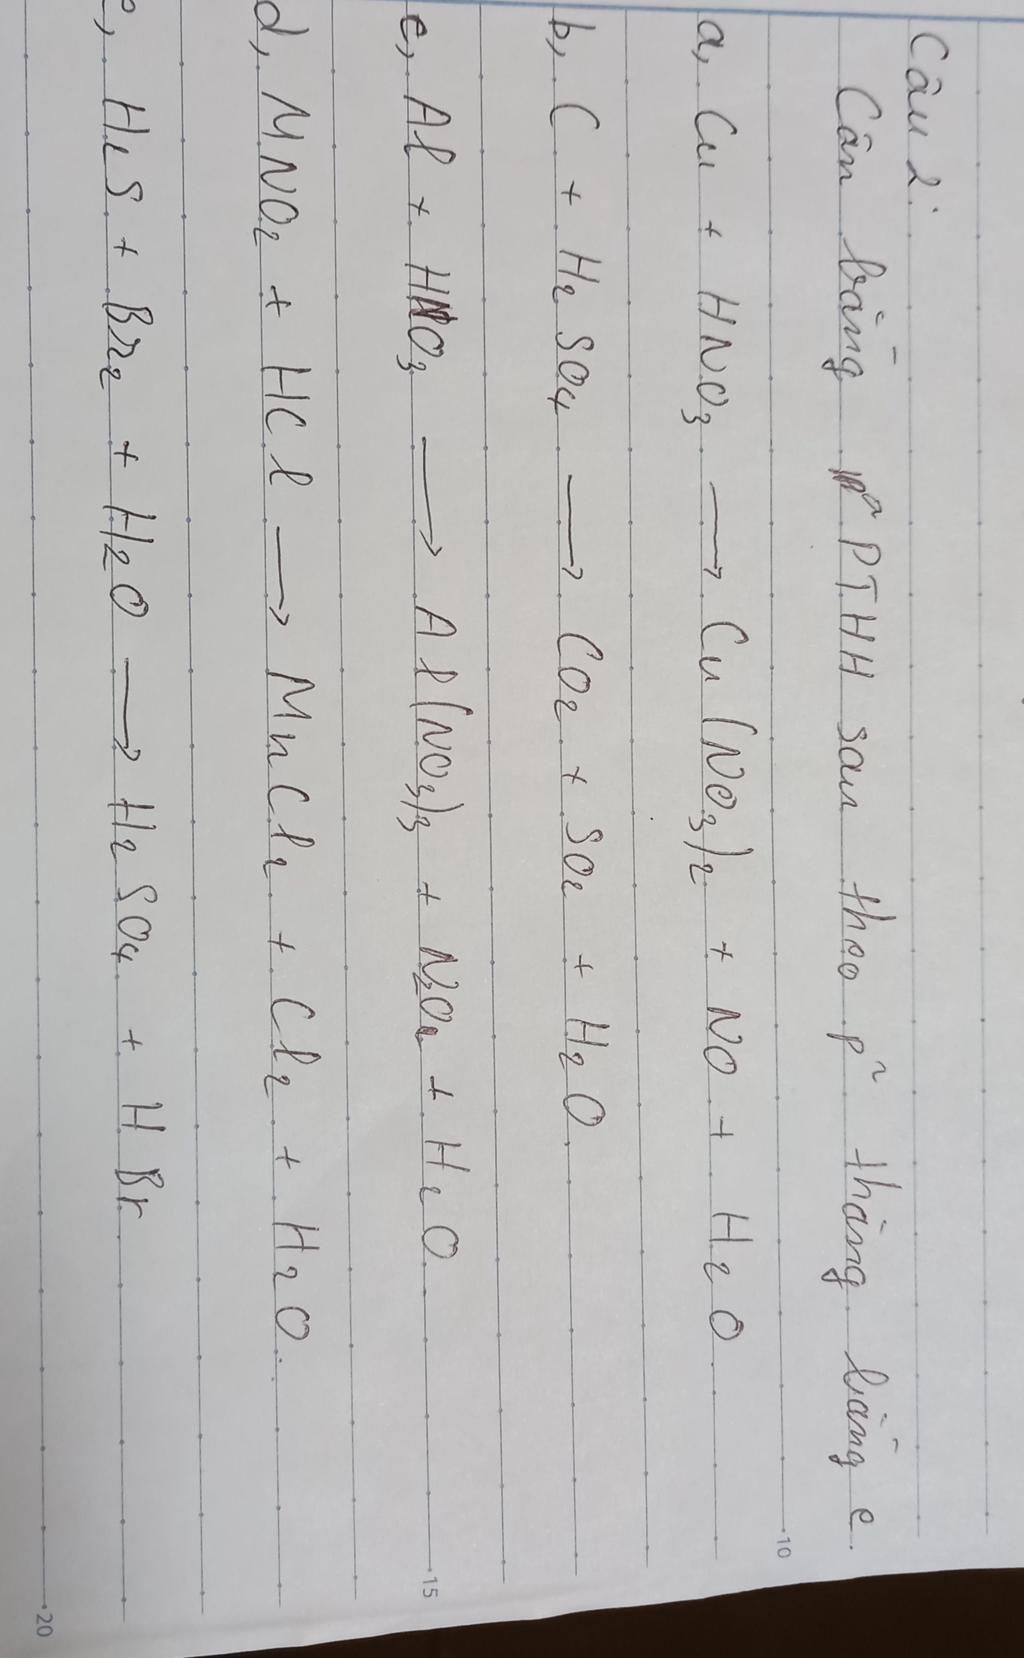 Câu 2:
Cân bằng PTHH sau theo p² thăng bằng e.
10
a, Cu + HNO3 → Cu(NO3)2 + NO + H2O
b, C + H2SO4 → CO2 + SO2 + H2O
c, Al + HNO3 → Al(NO3)3 + + H2O
15
d, MNO2 + HCl → MnCl2 + Cl2 + H2O.
e, H2S + Br2 + H2O → H2SO4 + HBr
20